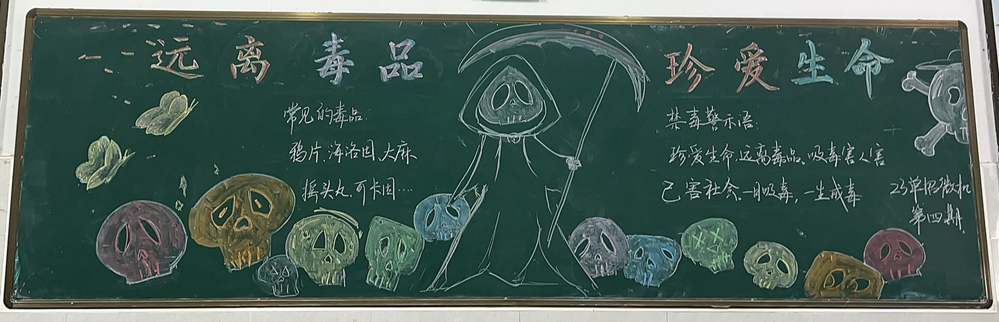 远离毒品
珍爱生命
常见的毒品:
鸦片、海洛因、大麻、
摇头丸、可卡因....
禁毒警示语:
珍爱生命、远离毒品、吸毒害人害
己害社会、一日吸毒，一生戒毒
23单招微机
第四期